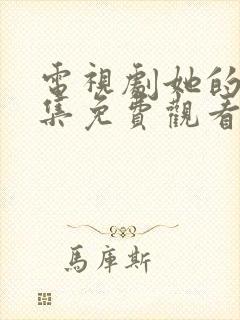 電視劇她的
集免費觀看
馬庫斯